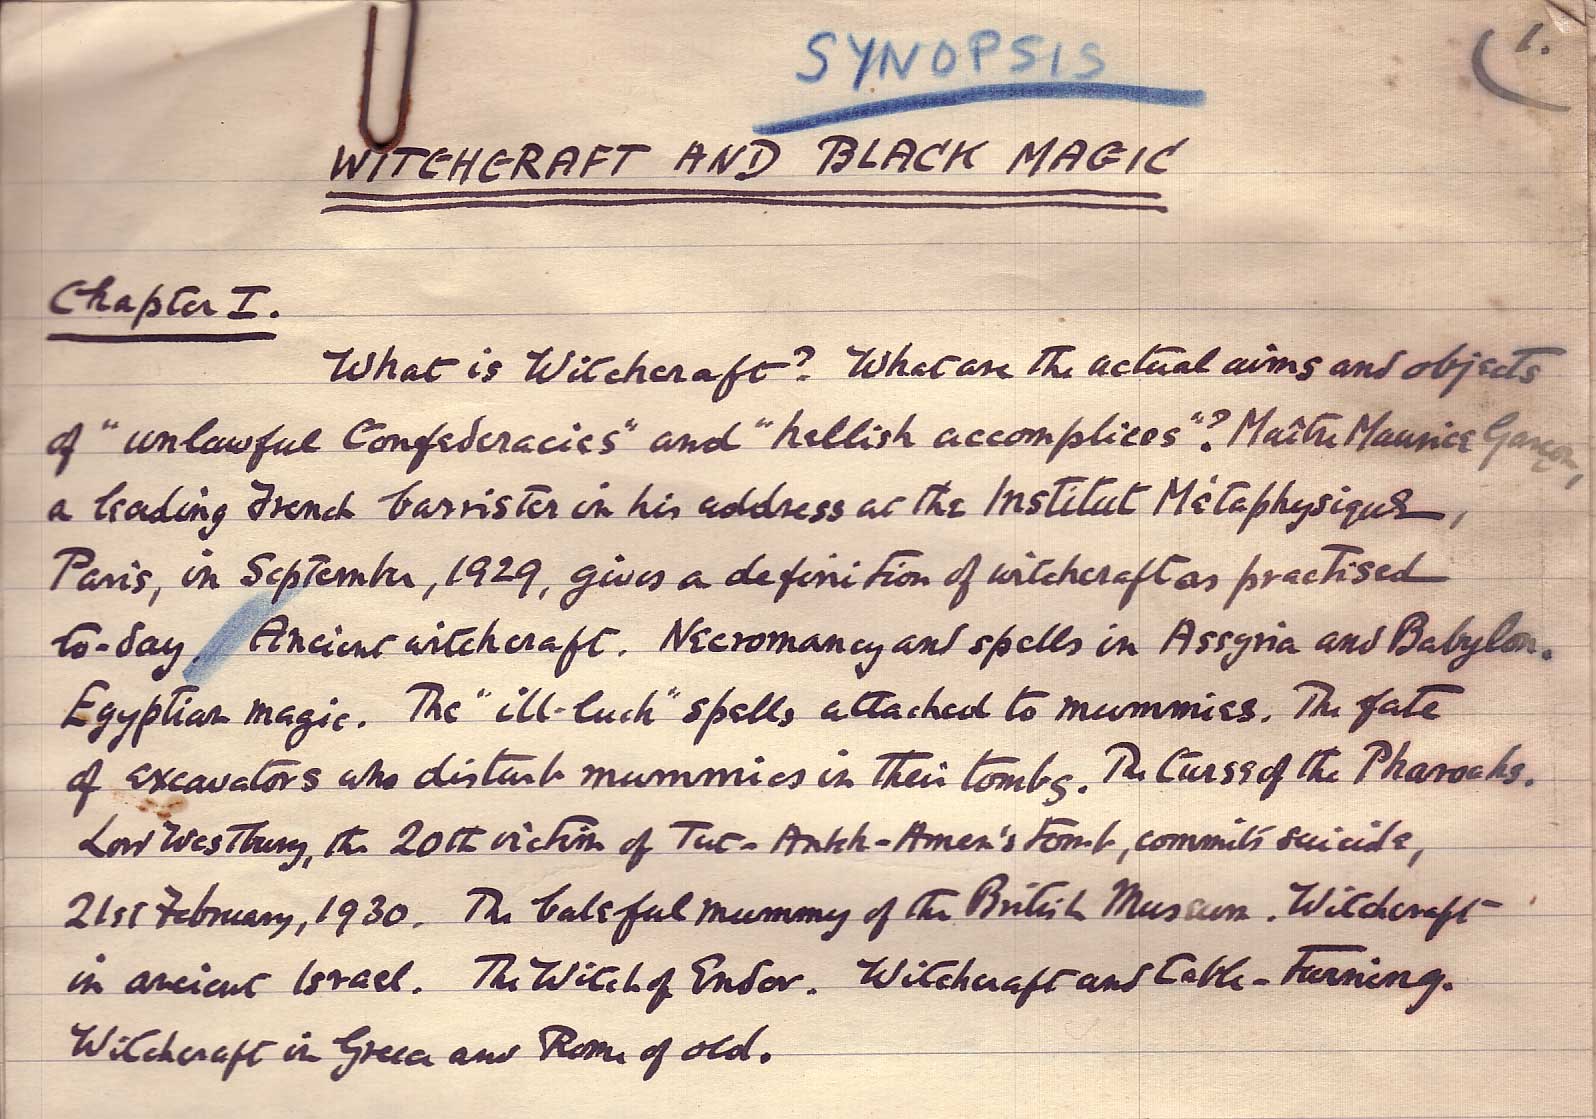 SYNOPSIS
1.
WITCHCRAFT AND BLACK MAGIC
Chapter I.
What is Witchcraft? What are the actual aims and objects
of "unlawful Confederacies" and "hellish accomplices"? Maître Maurice Garçon,
a leading French barrister in his address at the Institut Métaphysique,
Paris, in September, 1929, gives a definition of witchcraft as practised
to-day. Ancient witchcraft. Necromancy and spells in Assyria and Babylon.
Egyptian magic. The "ill-luck" spells attached to mummies. The fate
of excavators who disturb mummies in their tombs. The Curse of the Pharoahs.
Lord Westbury, the 20th victim of Tut-Ankh-Amen's tomb, commits suicide,
21st February, 1930. The baleful mummy of the British Museum. Witchcraft
in ancient Israel. The Witch of Endor. Witchcraft and table-turning.
Witchcraft in Greece and Rome of old.